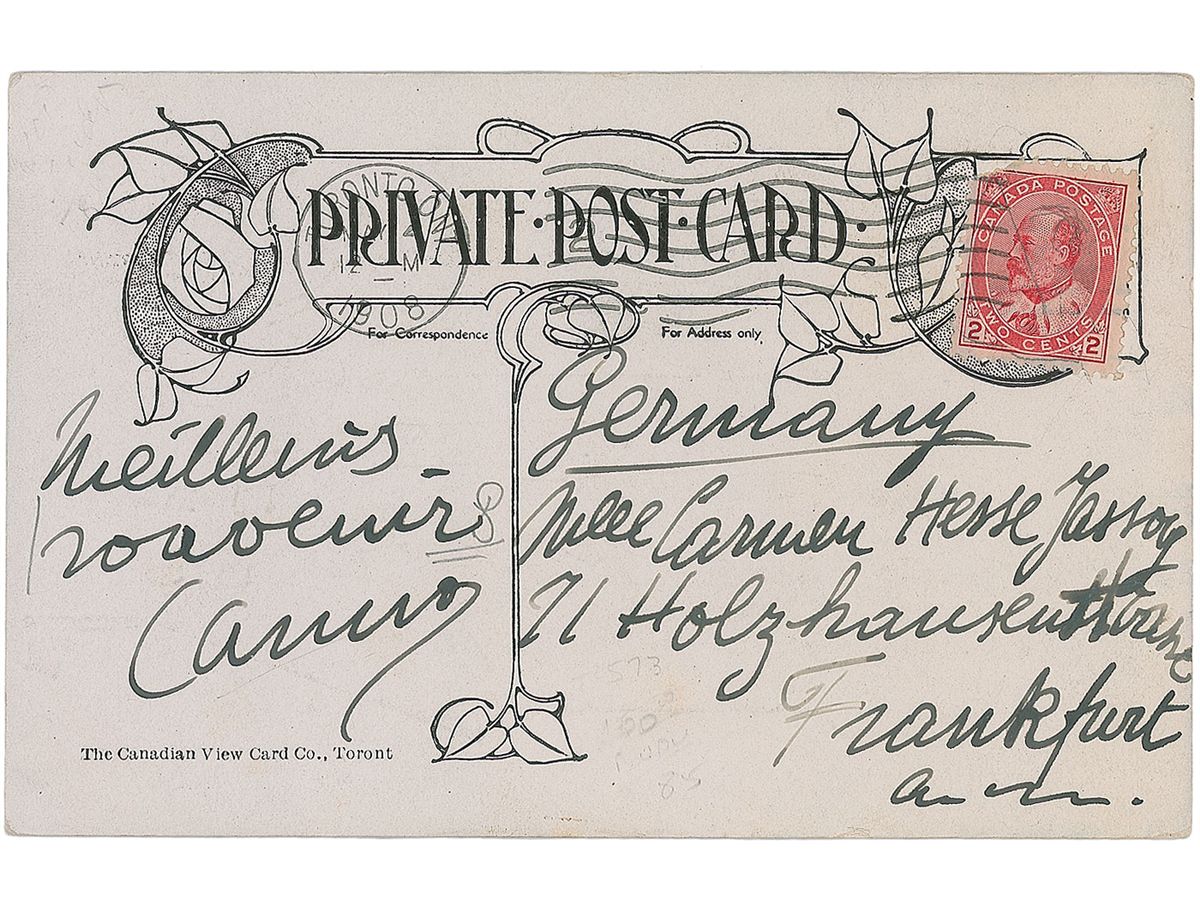 PRIVATE · POST · CARD ·
TORONTO, ON
12 - M
1908
CANADA POSTAGE
2 TWO CENTS 2
For Correspondence
For Address only
Meilleurs
souvenirs
Caruso
Germany
Mlle Carmen Hesse Jassoy
71 Holzhausen
Frankfurt
a. M.
573
85
The Canadian View Card Co., Toront